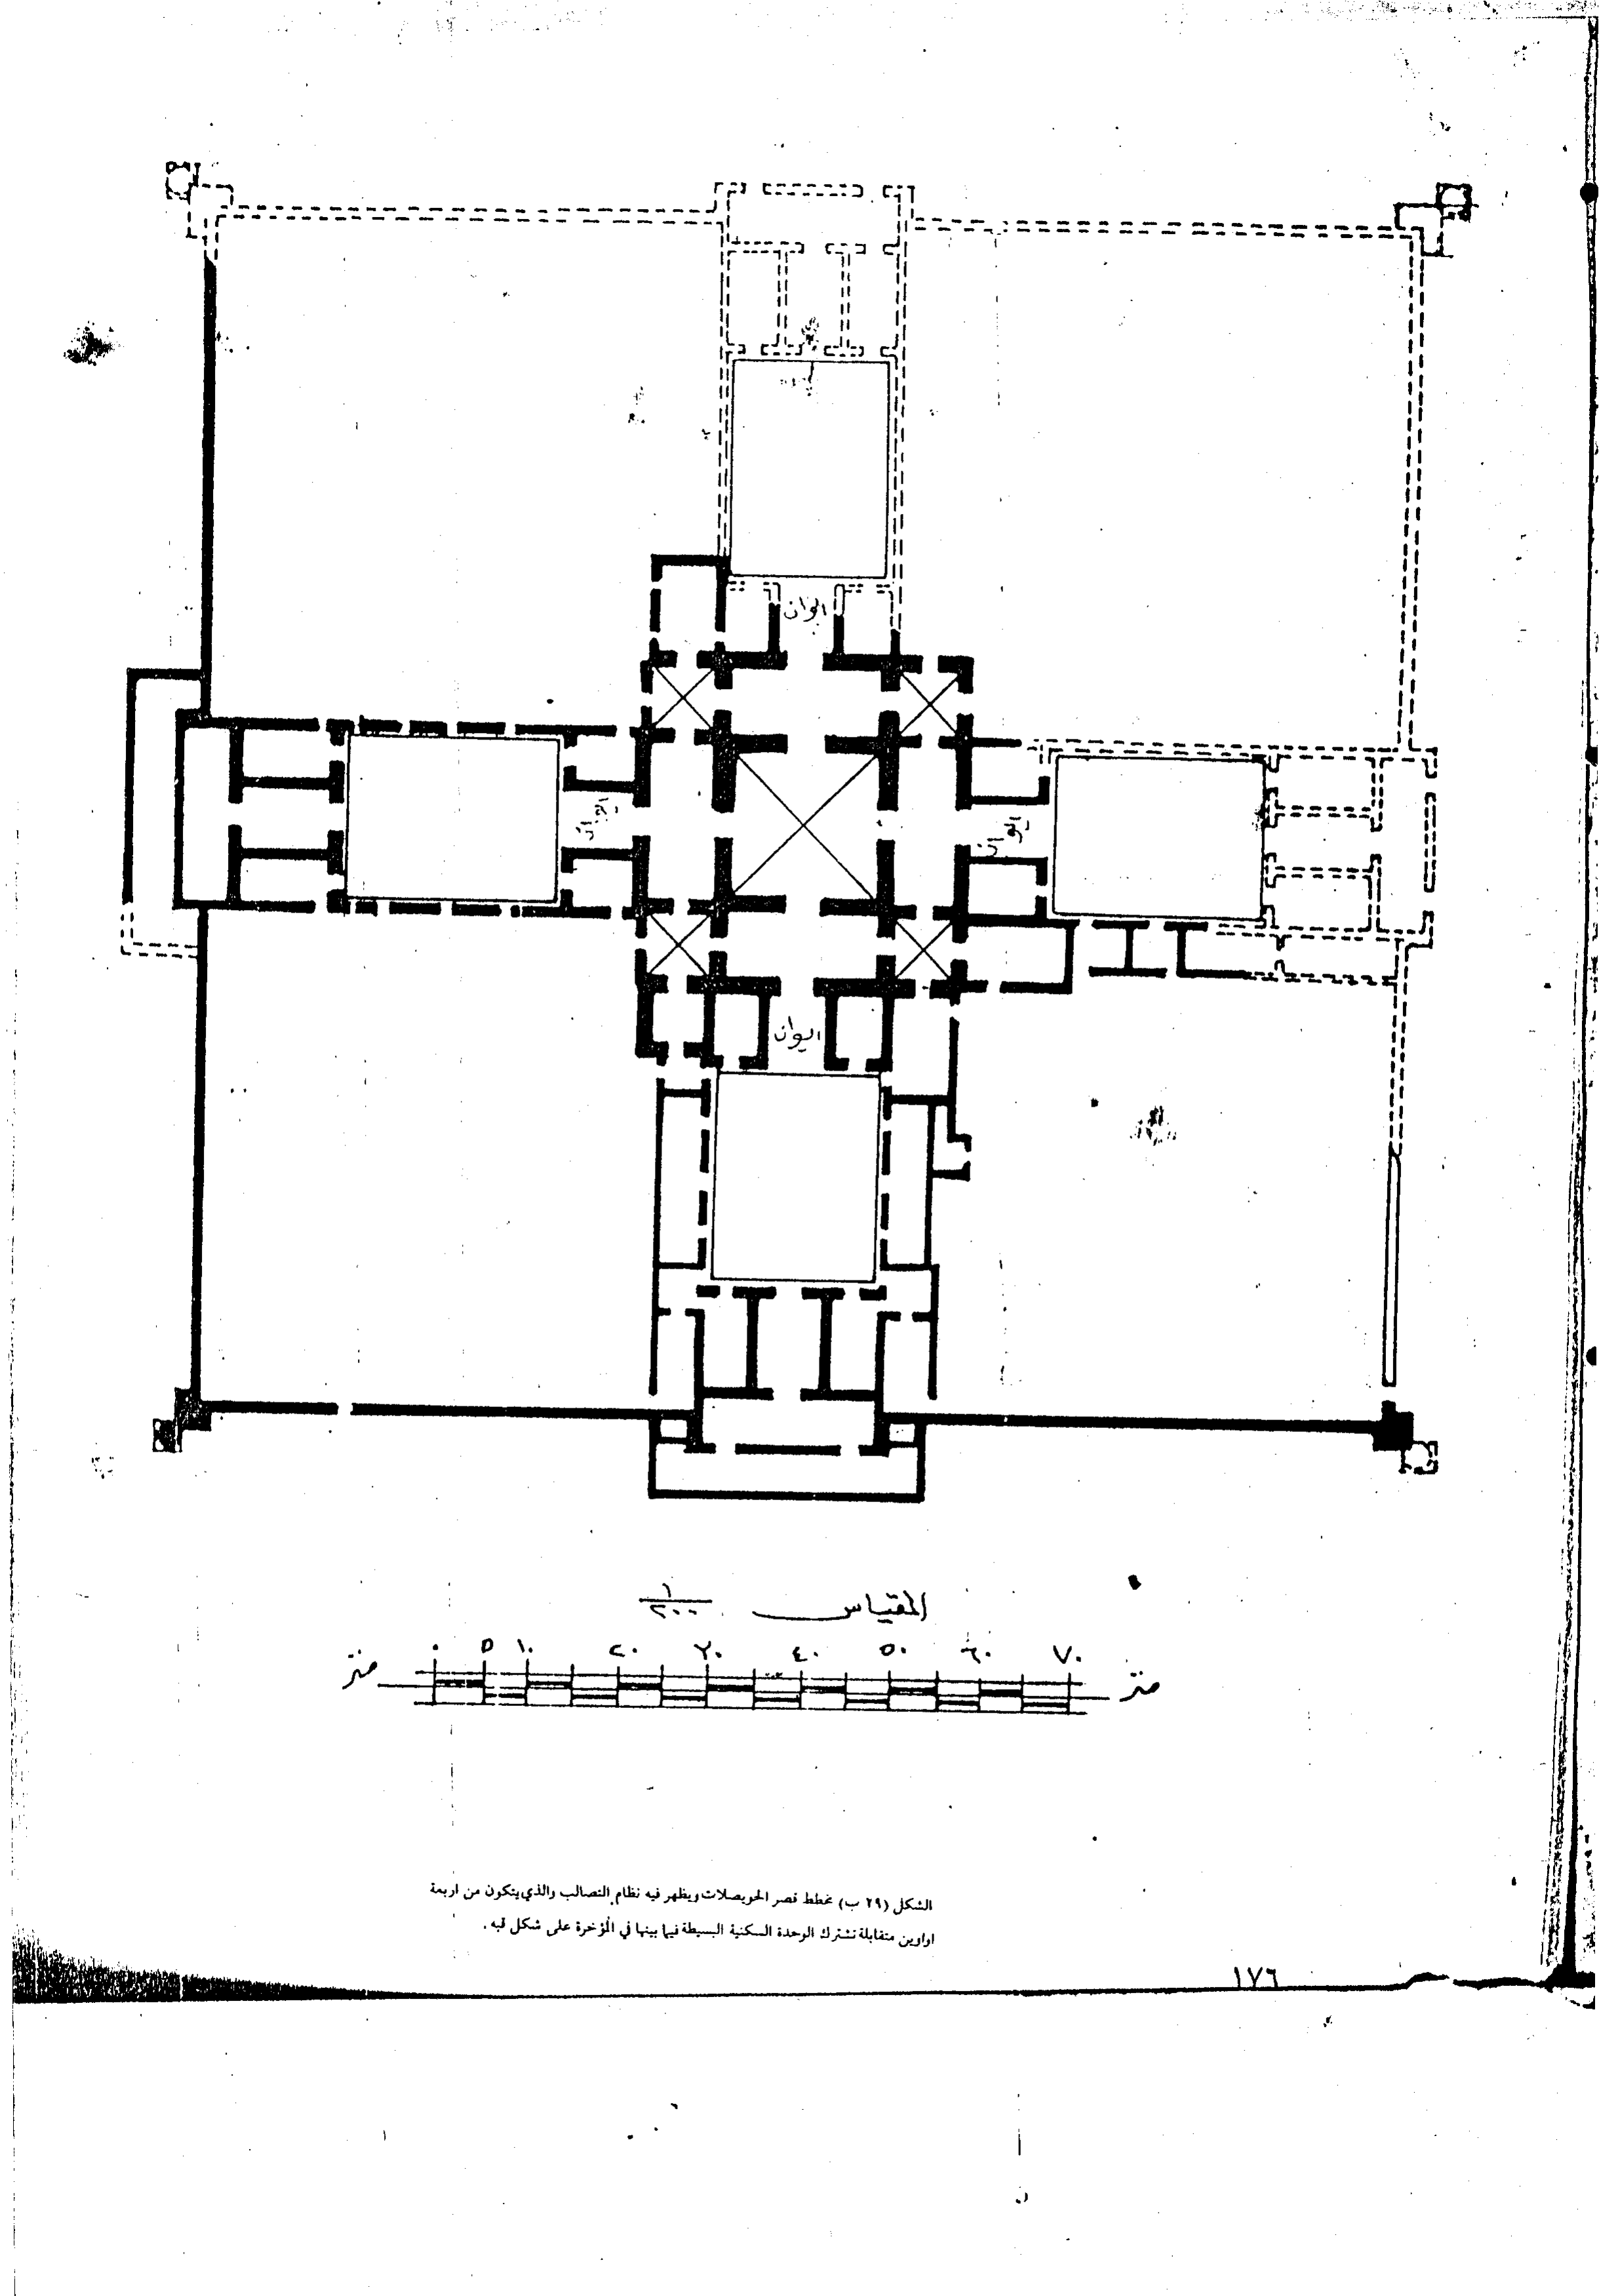 ايوان
ايوان
ايوان
ايوان
المقياس ١/٢٠٠
متر ٠ ٥ ١٠ ٢٠ ٣٠ ٤٠ ٥٠ ٦٠ ٧٠ متر
الشكل (٢٩ ب) مخطط قصر الحويصلات ويظهر فيه نظام التصالب والذي يتكون من اربعة
اواوين متقابلة تشترك الوحدة السكنية البسيطة فيما بينها في المؤخرة على شكل قبه .
١٧٦